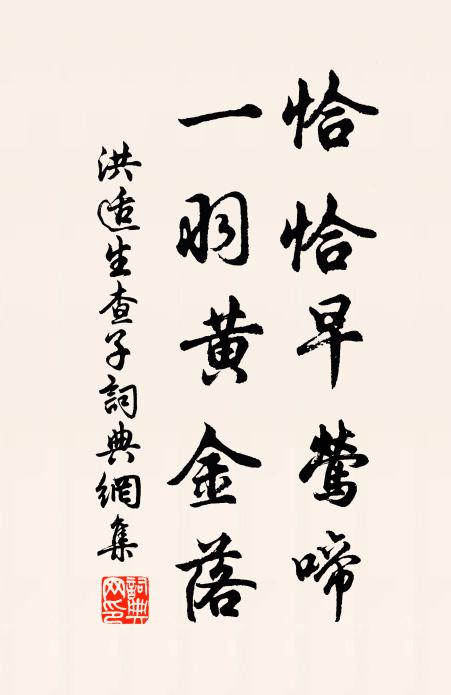 恰恰早鶯啼
一羽黃金落
洪适生查子詞典網集
詞典网印